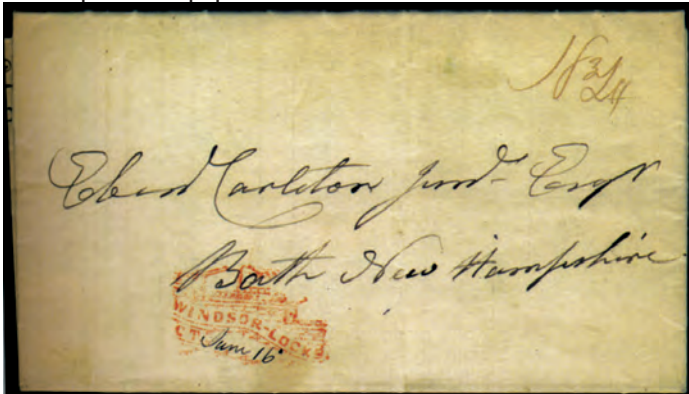 18¾
Ebenr Carleton Junr Esqr
Bath New Hampshire
WINDSOR-LOCKS.
CT.
June 16